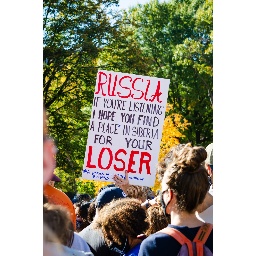 RUSSIA
IF YOU'RE LISTENING
I HOPE YOU FIND
A PLACE IN SIBERIA
FOR YOUR
LOSER